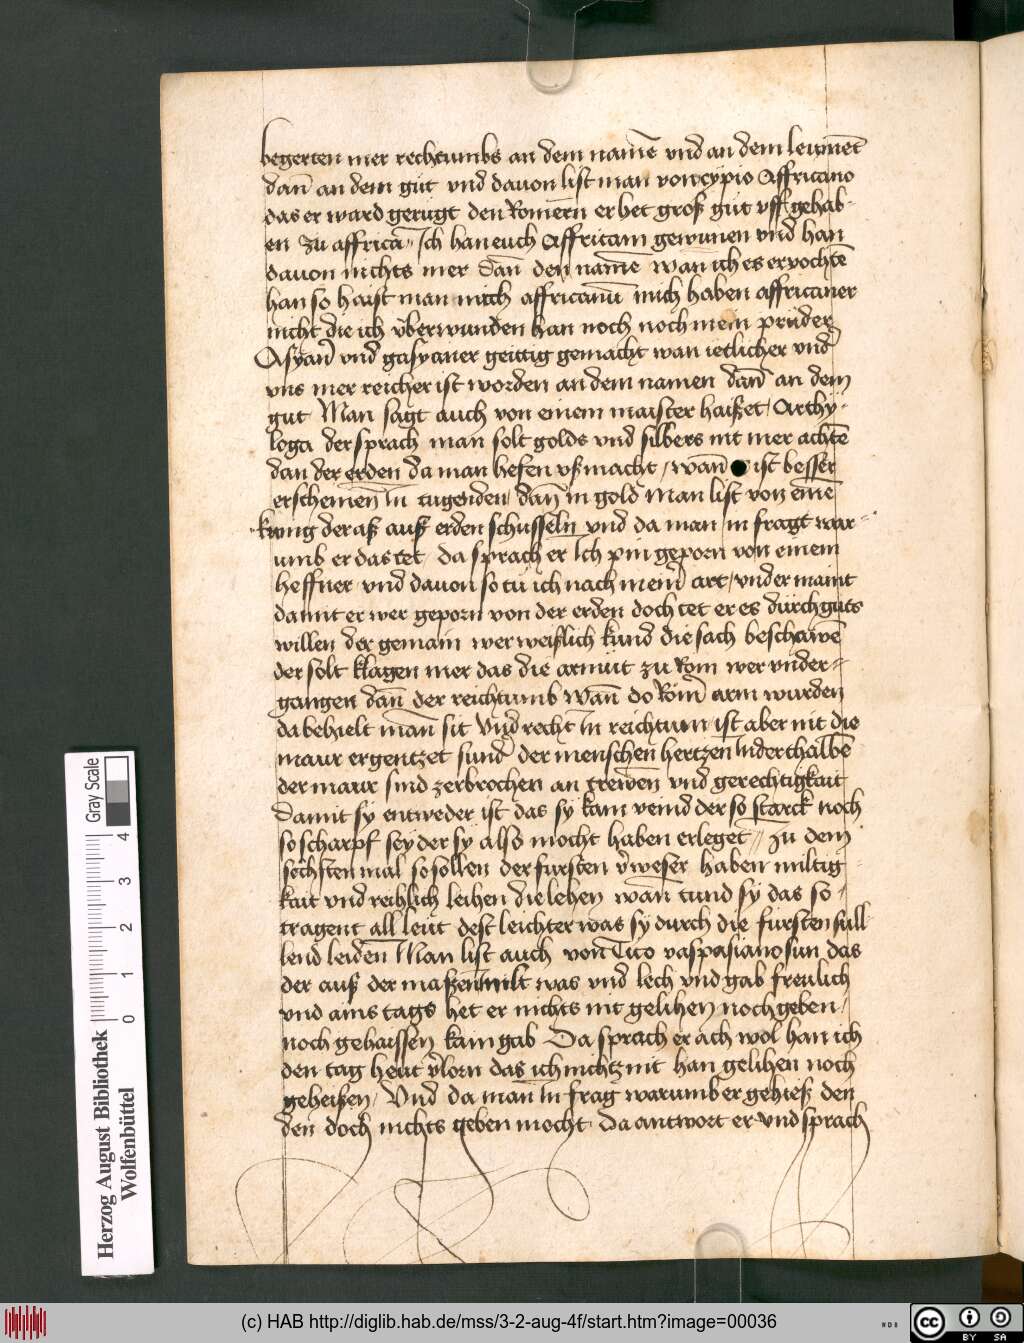 begerten mer rechtumbs an dem namē vnd an dem leūmēt
dan̄ an dem gūt vnd dauon list man von cypio Affricano
das er ward gerūgt den Romern er het groß gūt vff gehab-
en zu affrica Ich han euch Affricam gewunen vnd han
dauon nichts mer dan̄ den namē wan ich es ervochtē
han so haist man mich affricanū mich haben affricaner
nicht die ich v̄berwunden han noch noch mein prūder
Asyan̄ vnd gasyaner geittig gemacht wan ietlicher vnd̄
vns mer reicher ist worden an dem namen dan̄ an dem
gut Man sagt auch von einem maister haißet Archy-
loga der sprach man solt golds vnd silbers nit mer achtē
dan der erden da man hefen vß macht / wan̄ ist besser
erscheinen in tugenden dan̄ in gold Man list von einē
kūnig der aß auß erden schusseln vnd da man in fragt war-
umb er das tet da sprach er Ich pin geporn von einem
heffner vnd dauon so tū ich nach mein̄ art / vnder maint
damit er wer geporn von der erden doch tet er es dūrch gūts
willen der gemain wer weißlich kund die sach beschawē
der solt klagen mer das die armūt zu Rom wer vnder-
gangen dan̄ der reichtumb Wan̄ do Röm̄ arm wurden
da behielt man̄ sit Vnd̄ recht In reichtum ist aber nit die
maur ergentzet sund̄ der menschen hertzen Inderthalbē
der maur sind zerbrochen an trewen vnd gerechtigkait
Damit sy entweder ist das sy kain veind der so starck noch
so scharpf sey der sy also mocht haben erleget // Zu dem
sechsten mal so sollen der fursten v̄weser haben miltig-
kait vnd reihlich leihen die lehen wan̄ tund sy das so-
tragent all leūt dest leichter was sy durch die fursten sūll-
lend leiden Man list auch von Tito vaspasiano sun das
der auß der maßen milt was vnd lech vnd gab freulich
vnd ains tags het er nichts nit gelihen noch geben /
noch gehaissen kain gab Da sprach er ach wol han ich
den tag heut v̄lorn das ich nichtz nit han gelihen noch
geheißen / Vnd da man In frag warumb er gehieß den
den doch nichts geben mocht Da antwort er vnd sprach
Herzog August Bibliothek
Wolfenbüttel
Gray Scale
0 1 2 3 4
(c) HAB http://diglib.hab.de/mss/3-2-aug-4f/start.htm?image=00036
WDB
CC BY SA